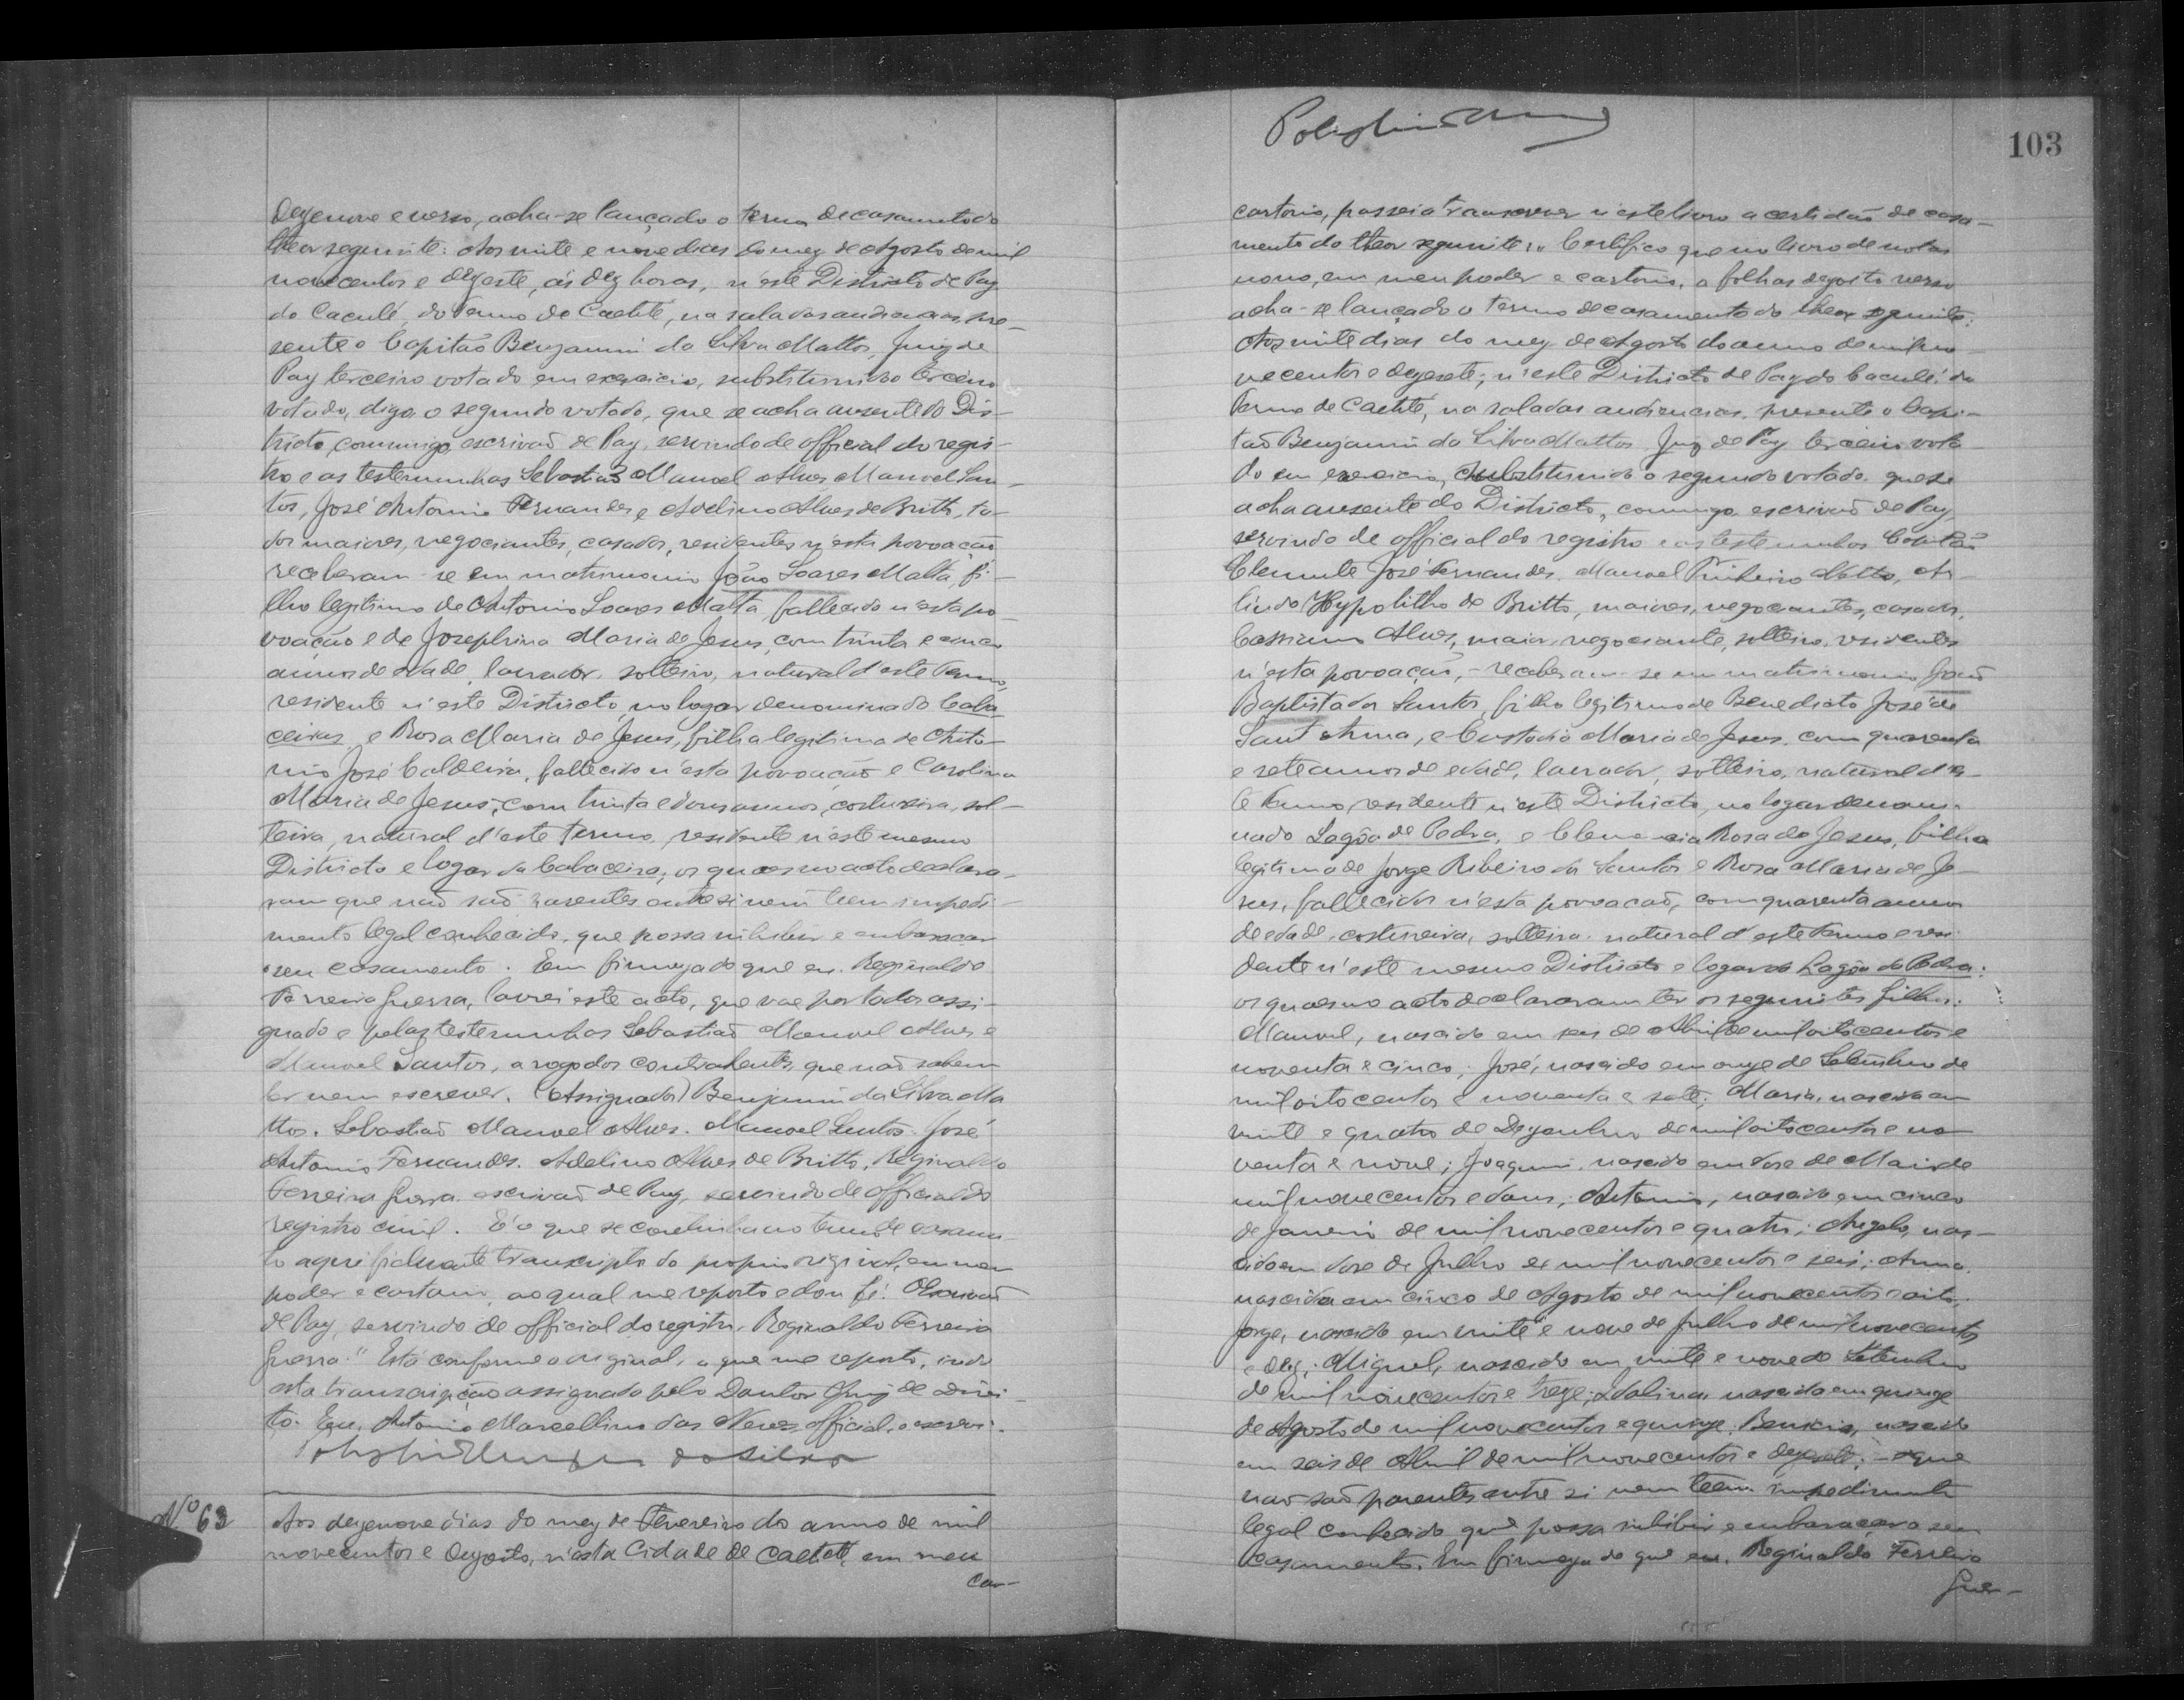 Dezenove e verso, acha-se lançado o termo de casamento do
theor seguinte: Aos vinte e nove dias do mez de Agosto de mil
novecentos e dezeste, ás dez horas, n'este Districto de Paz
do Caculé, do Termo de Caetité, na sala das audiencias, pre-
sente o Capitão Benjamin da Silva Mattos, Juiz de
Paz terceiro votado em exercicio, substituindo terceiro
votado, digo, o segundo votado, que se acha ausente do Dis-
tricto, commigo, escrivão de Paz, servindo de official do regis-
tro e as testemunhas Sebastião Manoel Alves Manoel San-
tos, José Antonio Fernandes e Adelino Alves de Britto, to-
dos maiores, negociantes, casados, residentes n'esta povoação
receberam-se em matrimonio João Soares Malta, fi-
lho legitimo de Antonio Soares Malta, fallecido n'esta po-
voação e de Josephina Maria de Jesus, com trinta e cinco
annos de edade, lavrador, solteiro, natural d'este Termo,
residente n'este Districto, no logar denominado Caba-
ceiras, e Rosa Maria de Jesus, filha legitima de Anto-
nio José Caldeira, fallecido n'esta povoação e Carolina
Maria de Jesus, com trinta e dous annos, costureira, sol-
teira, natural d'este termo, residente n'este mesmo
Districto e logar da Cabaceira; os quaes no acto declara-
ram que não são parentes entre si nem teem impedi-
mento legal conhecido, que possa inhibir e embaraçar
seu casamento. Em firmeza do que eu, Reginaldo
Ferreira Guerra, lavrei este acto, que vae por todos assi-
gnado e pelas testemunhas Sebastião Manoel Alves e
Manoel Santos, a rogo dos contrahentes, que não sabem
ler nem escrever. (Assignados) Benjamin da Silva Ma
ttos. Sebastião Manoel Alves. Manoel Santos. José
Antonio Fernandes. Adelino Alves de Britto, Reginaldo
Ferreira Guerra, escrivão de Paz, servindo de official do
registro civil. É o que se continha no termo de casamen-
to aqui fielmente transcripto do proprio original, em meu
poder e cartorio, ao qual me reporto e dou fé. O Escrivão
de Paz, servindo de official do registro, Reginaldo Ferreira
Guerra." Está conforme o original, a que me reporto, indo
esta transcripção assignada pelo Doutor Juiz de Direi-
to. Eu, Antonio Marcellino das Neves, official, o escrevi.
da Silva
Nº 63
Aos dezenove dias do mez de Fevereiro do anno de mil
novecentos e dezoito, n'esta Cidade de Caetité, em meu
car-
103
cartorio, passei a transcrever n'este livro a certidão de casa-
mento do theor seguinte: "Certifico que no livro de notas
novo, em meu poder e cartorio, a folhas dezoito verso
acha-se lançado o termo de casamento do theor seguinte:
Aos vinte dias do mez de Agosto do anno de mil no-
vecentos e dezesete; n'este Districto de Paz do Caculé, do
Termo de Caetité, na sala das audiencias, presente o Capi-
tão Benjamin da Silva Mattos Juiz de Paz terceiro vota
do em exercicio, substituindo o segundo votado, que se
acha ausente do Districto, commigo, escrivão de Paz,
servindo de official do registro e as testemunhas Capitão
Clemente José Fernandes, Manoel Pinheiro Netto, Ar-
lindo Hypolitho de Britto, maiores, negociantes, casados,
Cassiano Alves, maior, negociante, solteiro, residentes
n'esta povoação, - receberam-se em matrimonio João
Baptista dos Santos, filho legitimo de Benedicto José de
Sant'Anna, e Custodia Maria de Jesus, com quarenta
e sete annos de edade, lavrador, solteiro, natural d'es-
te Termo, residente n'este Districto, no logar denomi-
nado Lagôa de Pedra, e Clemencia Rosa de Jesus, filha
legitima de Jorge Ribeiro dos Santos e Rosa Maria de Je-
sus, fallecidos n'esta povoação, com quarenta annos
de edade, costureira, solteira, natural d'este Termo e resi-
dente n'este mesmo Districto e logar da Lagôa da Pedra:
os quaes no acto declararam ter os seguintes filhos:
Manoel, nascido em seis de Abril de mil oitocentos e
noventa e cinco; José, nascido em onze de Setembro de
mil oitocentos e noventa e sete; Maria, nascida em
vinte e quatro de Dezembro de mil oitocentos e no
venta e nove; Joaquim, nascido em doze de Maio de
mil novecentos e dous; Antonio, nascido em cinco
de Janeiro de mil novecentos e quatro; Angelo, nas-
cido em doze de Julho de mil novecentos e seis; Anna,
nascida em cinco de Agosto de mil novecentos e oito;
Jorge, nascido em vinte e nove de Julho de mil novecentos
e dez; Miguel, nascido em vinte e nove de Setembro
de mil novecentos e treze; Idalina, nascida em quinze
de Agosto de mil novecentos e quinze; Benicio, nascido
em seis de Abril de mil novecentos e dezesete; - e que
não são parentes entre si nem teem impedimento
legal conhecido que possa inhibir e embaraçar o seu
casamento. Em firmeza do que eu, Reginaldo Ferreira
Guer-